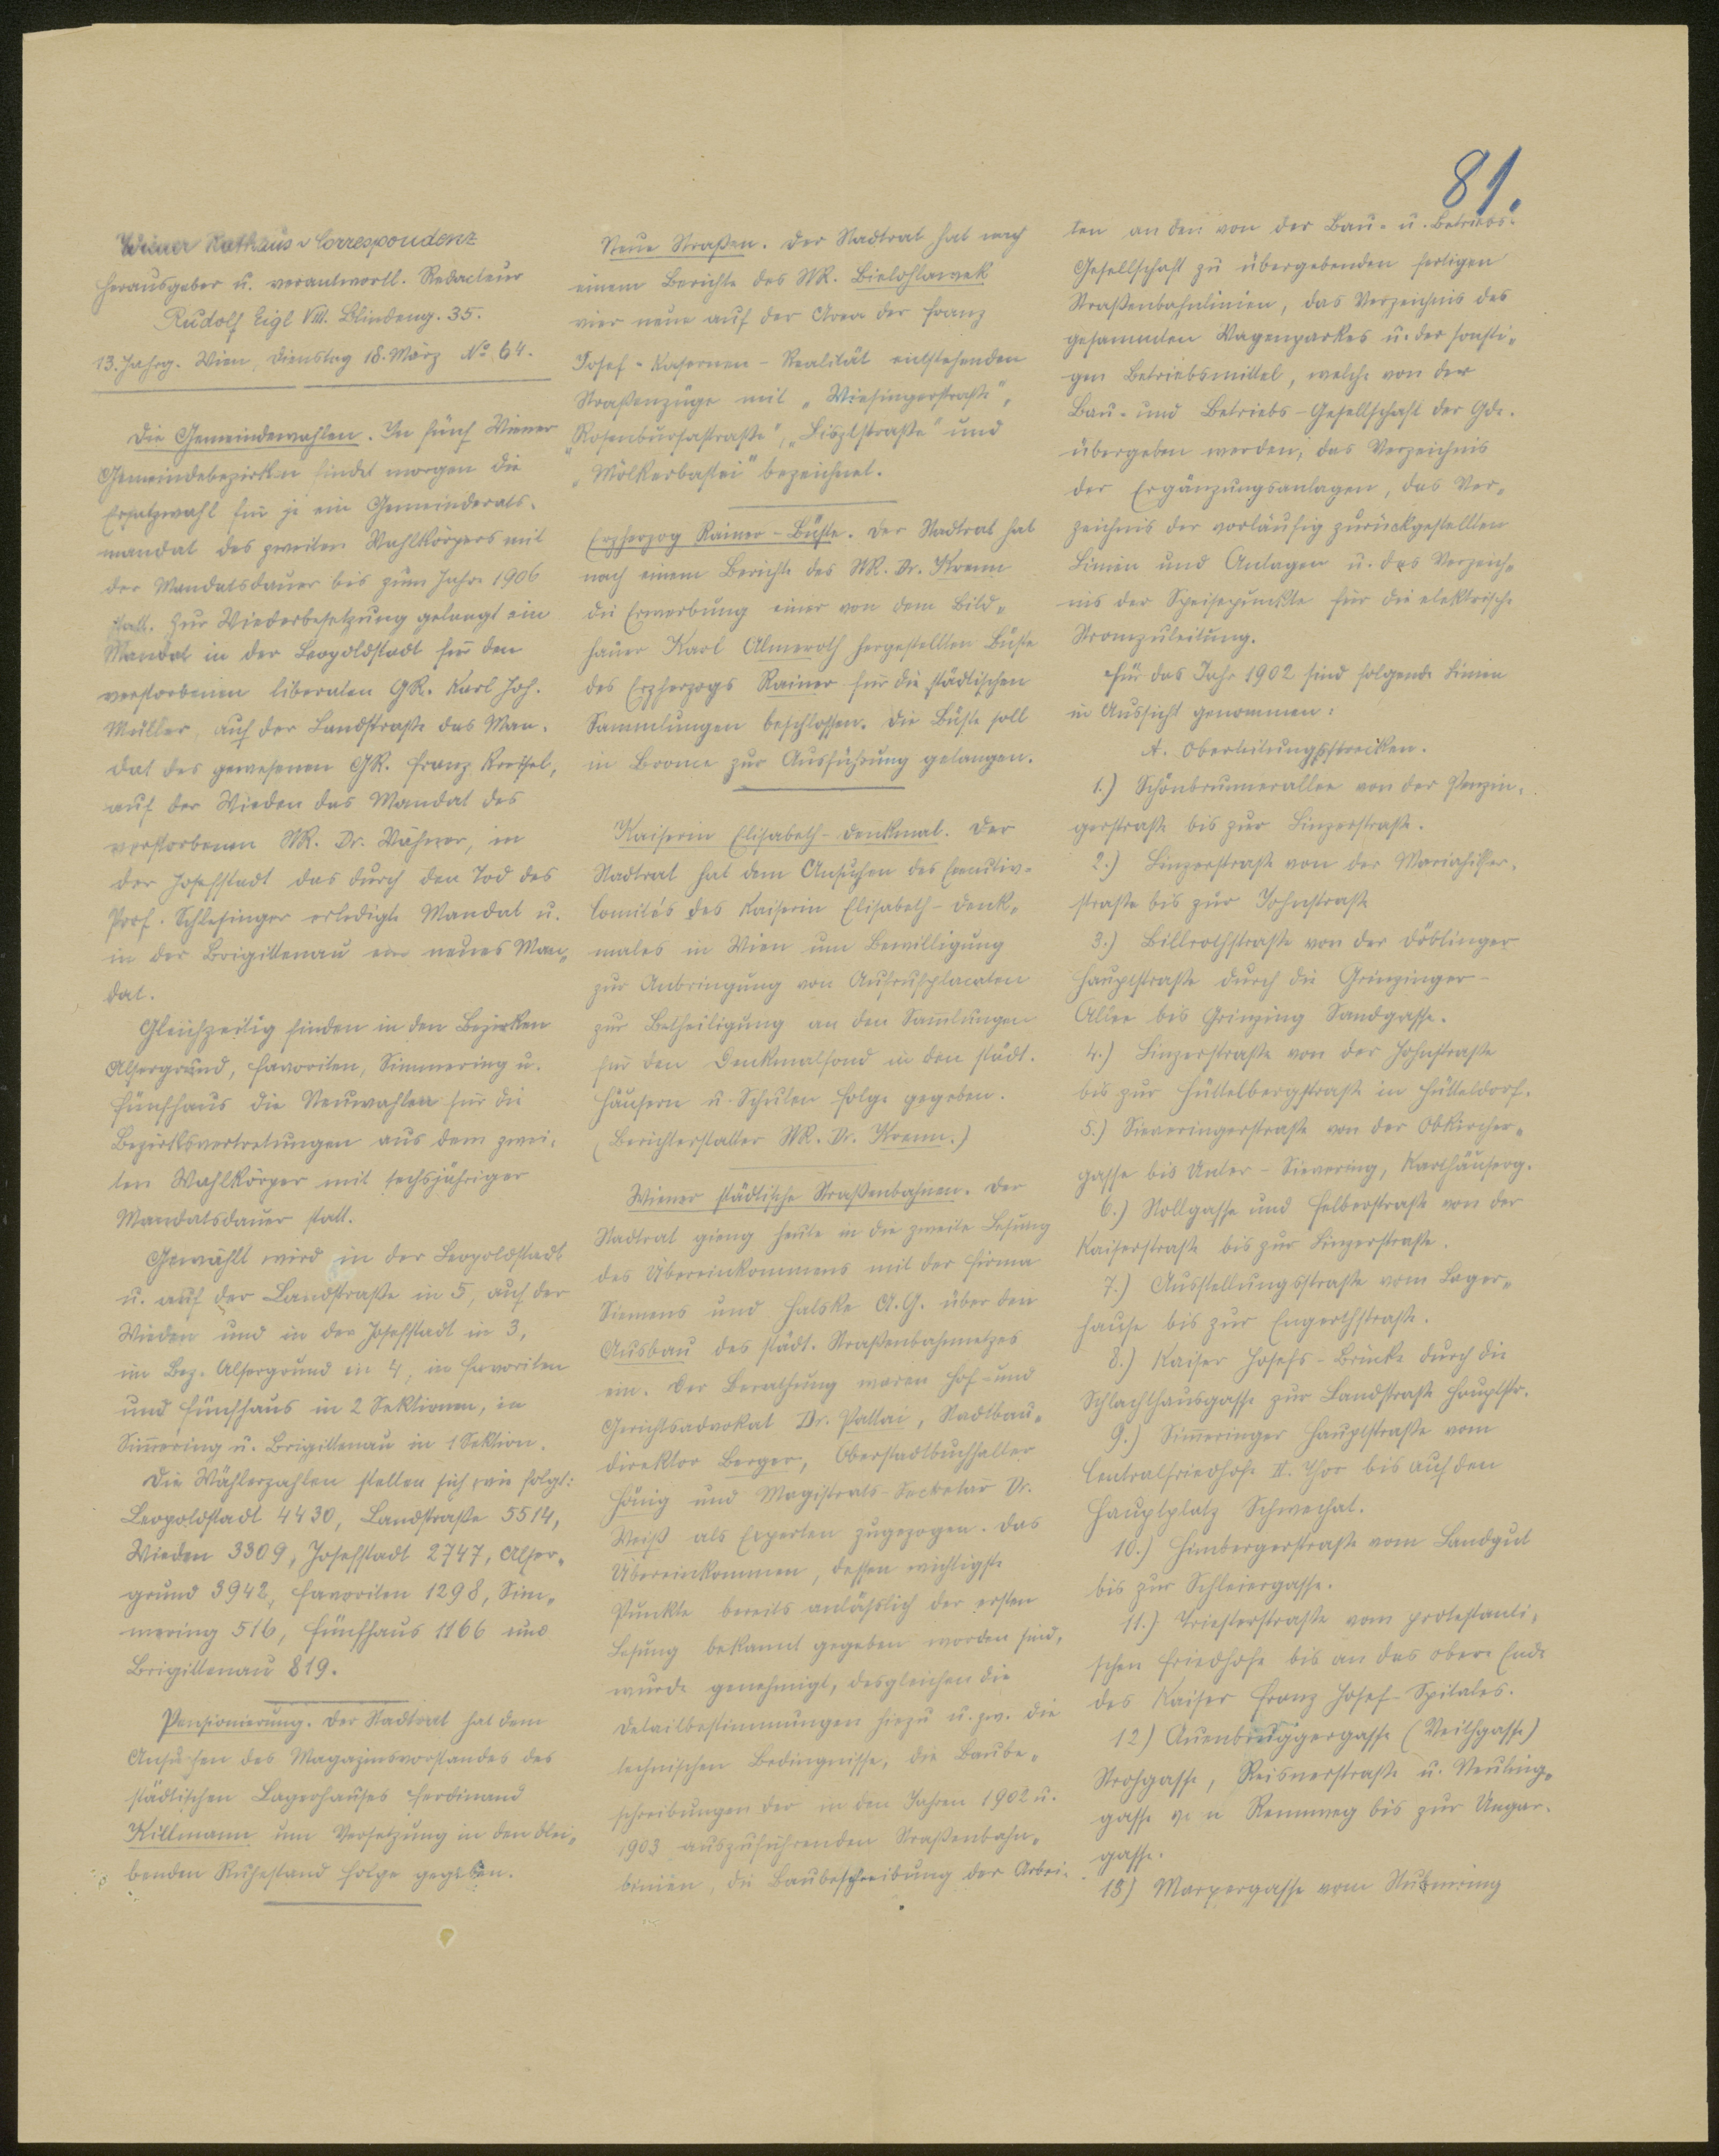 81.
Wiener Rathaus-Correspondenz
Herausgeber u. verantwortl. Redacteur
Rudolf Eigl VIII. Blindeng. 35.
13. Jahrg. Wien, Dienstag 18. März No. 64.
Die Gemeindewahlen. In fünf Wiener
Gemeindebezirken findet morgen die
Ersatzwahl für je ein Gemeinderats-
mandat des zweiten Wahlkörpers mit
der Mandatsdauer bis zum Jahre 1906
statt. Zur Wiederbesetzung gelangt ein
Mandat in der Leopoldstadt für den
verstorbenen liberalen GR. Karl Joh.
Müller, auf der Landstraße das Man-
dat des gewesenen GR. Franz Kreisel,
auf der Wieden das Mandat des
verstorbenen StR. Dr. Wähner, in
der Josefstadt das durch den Tod des
Prof. Schlesinger erledigte Mandat u.
in der Brigittenau ein neues Man-
dat.
Gleichzeitig finden in den Bezirken
Alsergrund, Favoriten, Simmering u.
Fünfhaus die Neuwahlen für die
Bezirksvertretungen aus dem zwei-
ten Wahlkörper mit sechsjähriger
Mandatsdauer statt.
Gewählt wird in der Leopoldstadt
u. auf der Landstraße in 5, auf der
Wieden und in der Josefstadt in 3,
im Bez. Alsergrund in 4, in Favoriten
und Fünfhaus in 2 Sektionen, in
Sim̅ering u. Brigittenau in 1 Sektion.
Die Wählerzahlen stellen sich wie folgt:
Leopoldstadt 4430, Landstraße 5514,
Wieden 3309, Josefstadt 2747, Alser-
grund 3942, Favoriten 1298, Sim-
mering 516, Fünfhaus 1166 und
Brigittenau 819.
Pensionierung. Der Stadtrat hat dem
Ansuchen des Magazinsvorstandes des
städtischen Lagerhauses Ferdinand
Killmann um Versetzung in den blei-
benden Ruhestand Folge gegeben.
Neue Straßen. Der Stadtrat hat nach
einem Berichte des StR. Bielohlawek
vier neue auf der Area der Franz
Josef-Kasernen-Realität entstehenden
Straßenzüge mit „Wiesingerstraße",
„Rosenbursastraße", „Biszlstraße" und
„Mölkerbastei" bezeichnet.
Erzherzog Rainer-Büste. Der Stadtrat hat
nach einem Berichte des StR. Dr. Krenn
die Erwerbung einer von dem Bild-
hauer Karl Almeroth hergestellten Büste
des Erzherzogs Rainer für die städtischen
Sammlungen beschlossen. Die Büste soll
in Bronce zur Ausführung gelangen.
Kaiserin Elisabeth-Denkmal. Der
Stadtrat hat dem Ansuchen des Executiv-
Comités des Kaiserin Elisabeth-Denk-
males in Wien um Bewilligung
zur Anbringung von Aufrufsplacaten
zur Betheiligung an den Sam̅lungen
für den Denkmalfond in den städt.
Häusern u. Schulen Folge gegeben.
(Berichterstatter StR. Dr. Krenn.)
Wiener städtische Straßenbahnen. Der
Stadtrat gieng heute in die zweite Lesung
des Übereinkommens mit der Firma
Siemens und Halske A.G. über den
Ausbau des städt. Straßenbahnnetzes
ein. Der Berathung waren Hof- und
Gerichtsadvokat Dr. Pattai, Stadtbau-
direktor Berger, Oberstadtbuchhalter
Hönig und Magistrats-Secketär Dr.
Weiß als Experten zugezogen. Das
Übereinkommen, dessen wichtigste
Punkte bereits anläßlich der ersten
Lesung bekannt gegeben worden sind,
wurde genehmigt, desgleichen die
Detailbestimmungen hiezu u. zw. die
technischen Bedingnisse, die Baube-
schreibungen der in den Jahren 1902 u.
1903 auszuführenden Straßenbahn-
linien, die Baubeschreibung der Arbei-
ten an den von der Bau- u. Betriebs-
Gesellschaft zu übergebenden fertigen
Straßenbahnlinien, das Verzeichnis des
gesammten Wagenparkes u. der sonsti-
gen Betriebsmittel, welche von der
Bau- und Betriebs-Gesellschaft der Gde.
übergeben werden, das Verzeichnis
der Ergänzungsanlagen, das Ver-
zeichnis der vorläufig zurückgestellten
Linien und Anlagen u. das Verzeich-
nis der Speisepunkte für die elektrische
Stromzuleitung.
Für das Jahr 1902 sind folgende Linien
in Aussicht genommen:
A. Oberleitungsstrecken.
1.) Schönbrunnerallee von der Penzin-
gerstraße bis zur Linzerstraße.
2.) Linzerstraße von der Mariahilfer-
straße bis zur Johnstraße
3.) Billrothstraße von der Döblinger
Hauptstraße durch die Grinzinger-
Allee bis Grinzing Sandgasse.
4.) Linzerstraße von der Johnstraße
bis zur Hüttelbergstraße in Hütteldorf.
5.) Sieveringerstraße von der Obkircher-
gasse bis Unter-Sievering, Karthäuserg.
6.) Stollgasse und Felberstraße von der
Kaiserstraße bis zur Linzerstraße.
7.) Ausstellungsstraße vom Lager-
hause bis zur Engerthstraße.
8.) Kaiser Josefs-Brücke durch die
Schlachthausgasse zur Landstraße Hauptstr.
9.) Sim̅eringer Hauptstraße vom
Centralfriedhofe II. Thor bis auf den
Hauptplatz Schwechat.
10.) Himbergerstraße vom Landgut
bis zur Schleiergasse.
11.) Triesterstraße vom protestanti-
schen Friedhofe bis an das obere Ende
des Kaiser Franz Josef-Spitales.
12) Auenbruggergasse (Veithgasse)
Strohgasse, Reisnerstraße u. Neuling-
gasse vom Rennweg bis zur Ungar-
gasse.
13) Marxergasse vom Stubenring